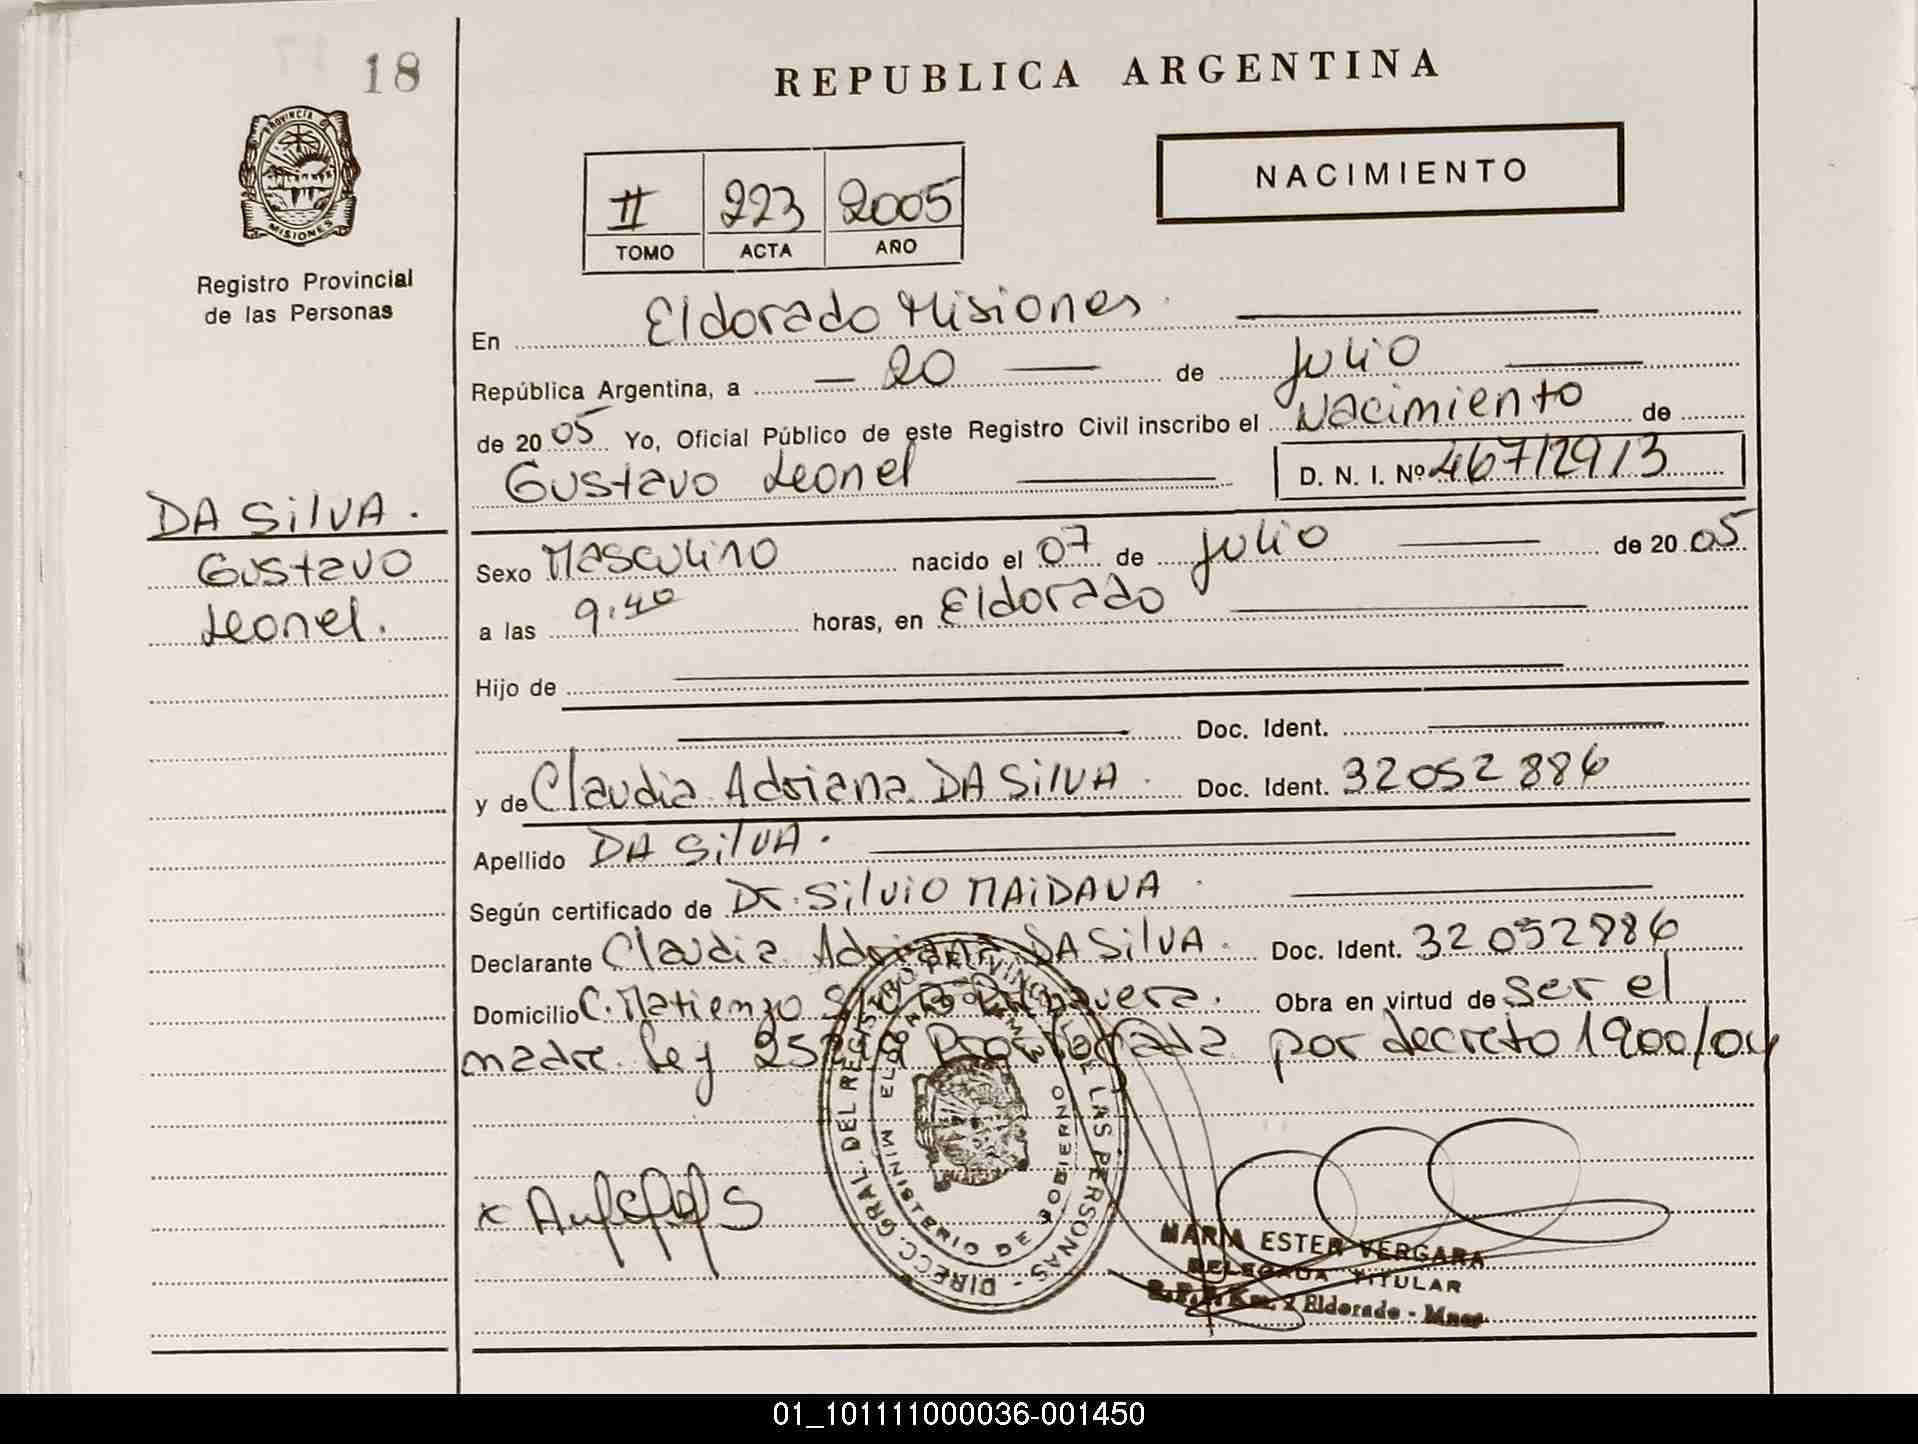 18
REPUBLICA ARGENTINA
PROVINCIA DE
MISIONES
Registro Provincial
de las Personas
NACIMIENTO
II 223 2005
TOMO ACTA AÑO
En Eldorado Misiones
República Argentina, a 20 de Julio
de 2005 Yo, Oficial Público de este Registro Civil inscribo el Nacimiento de
Gustavo Leonel D. N. I. Nº 46712913
DA SilVA.
Gustavo
Leonel.
Sexo Masculino nacido el 07 de Julio de 2005
a las 9:40 horas, en Eldorado
Hijo de
Doc. Ident.
y de Claudia Adriana DA SilVA Doc. Ident. 32052886
Apellido DA SilVA.
Según certificado de Dr. Silvio MAiDANA
Declarante Claudia Adriana DA SilVA. Doc. Ident. 32052886
Domicilio C. Matienzo Obra en virtud de ser el
madre. Ley por decreto 1900/04
DIREC. GRAL. DEL REGISTRO PROVINCIAL DE LAS PERSONAS -
MINISTERIO DE GOBIERNO
MARIA ESTER VERGARA
DELEGADA TITULAR
Km. 2 Eldorado - Mnes.
01_101111000036-001450